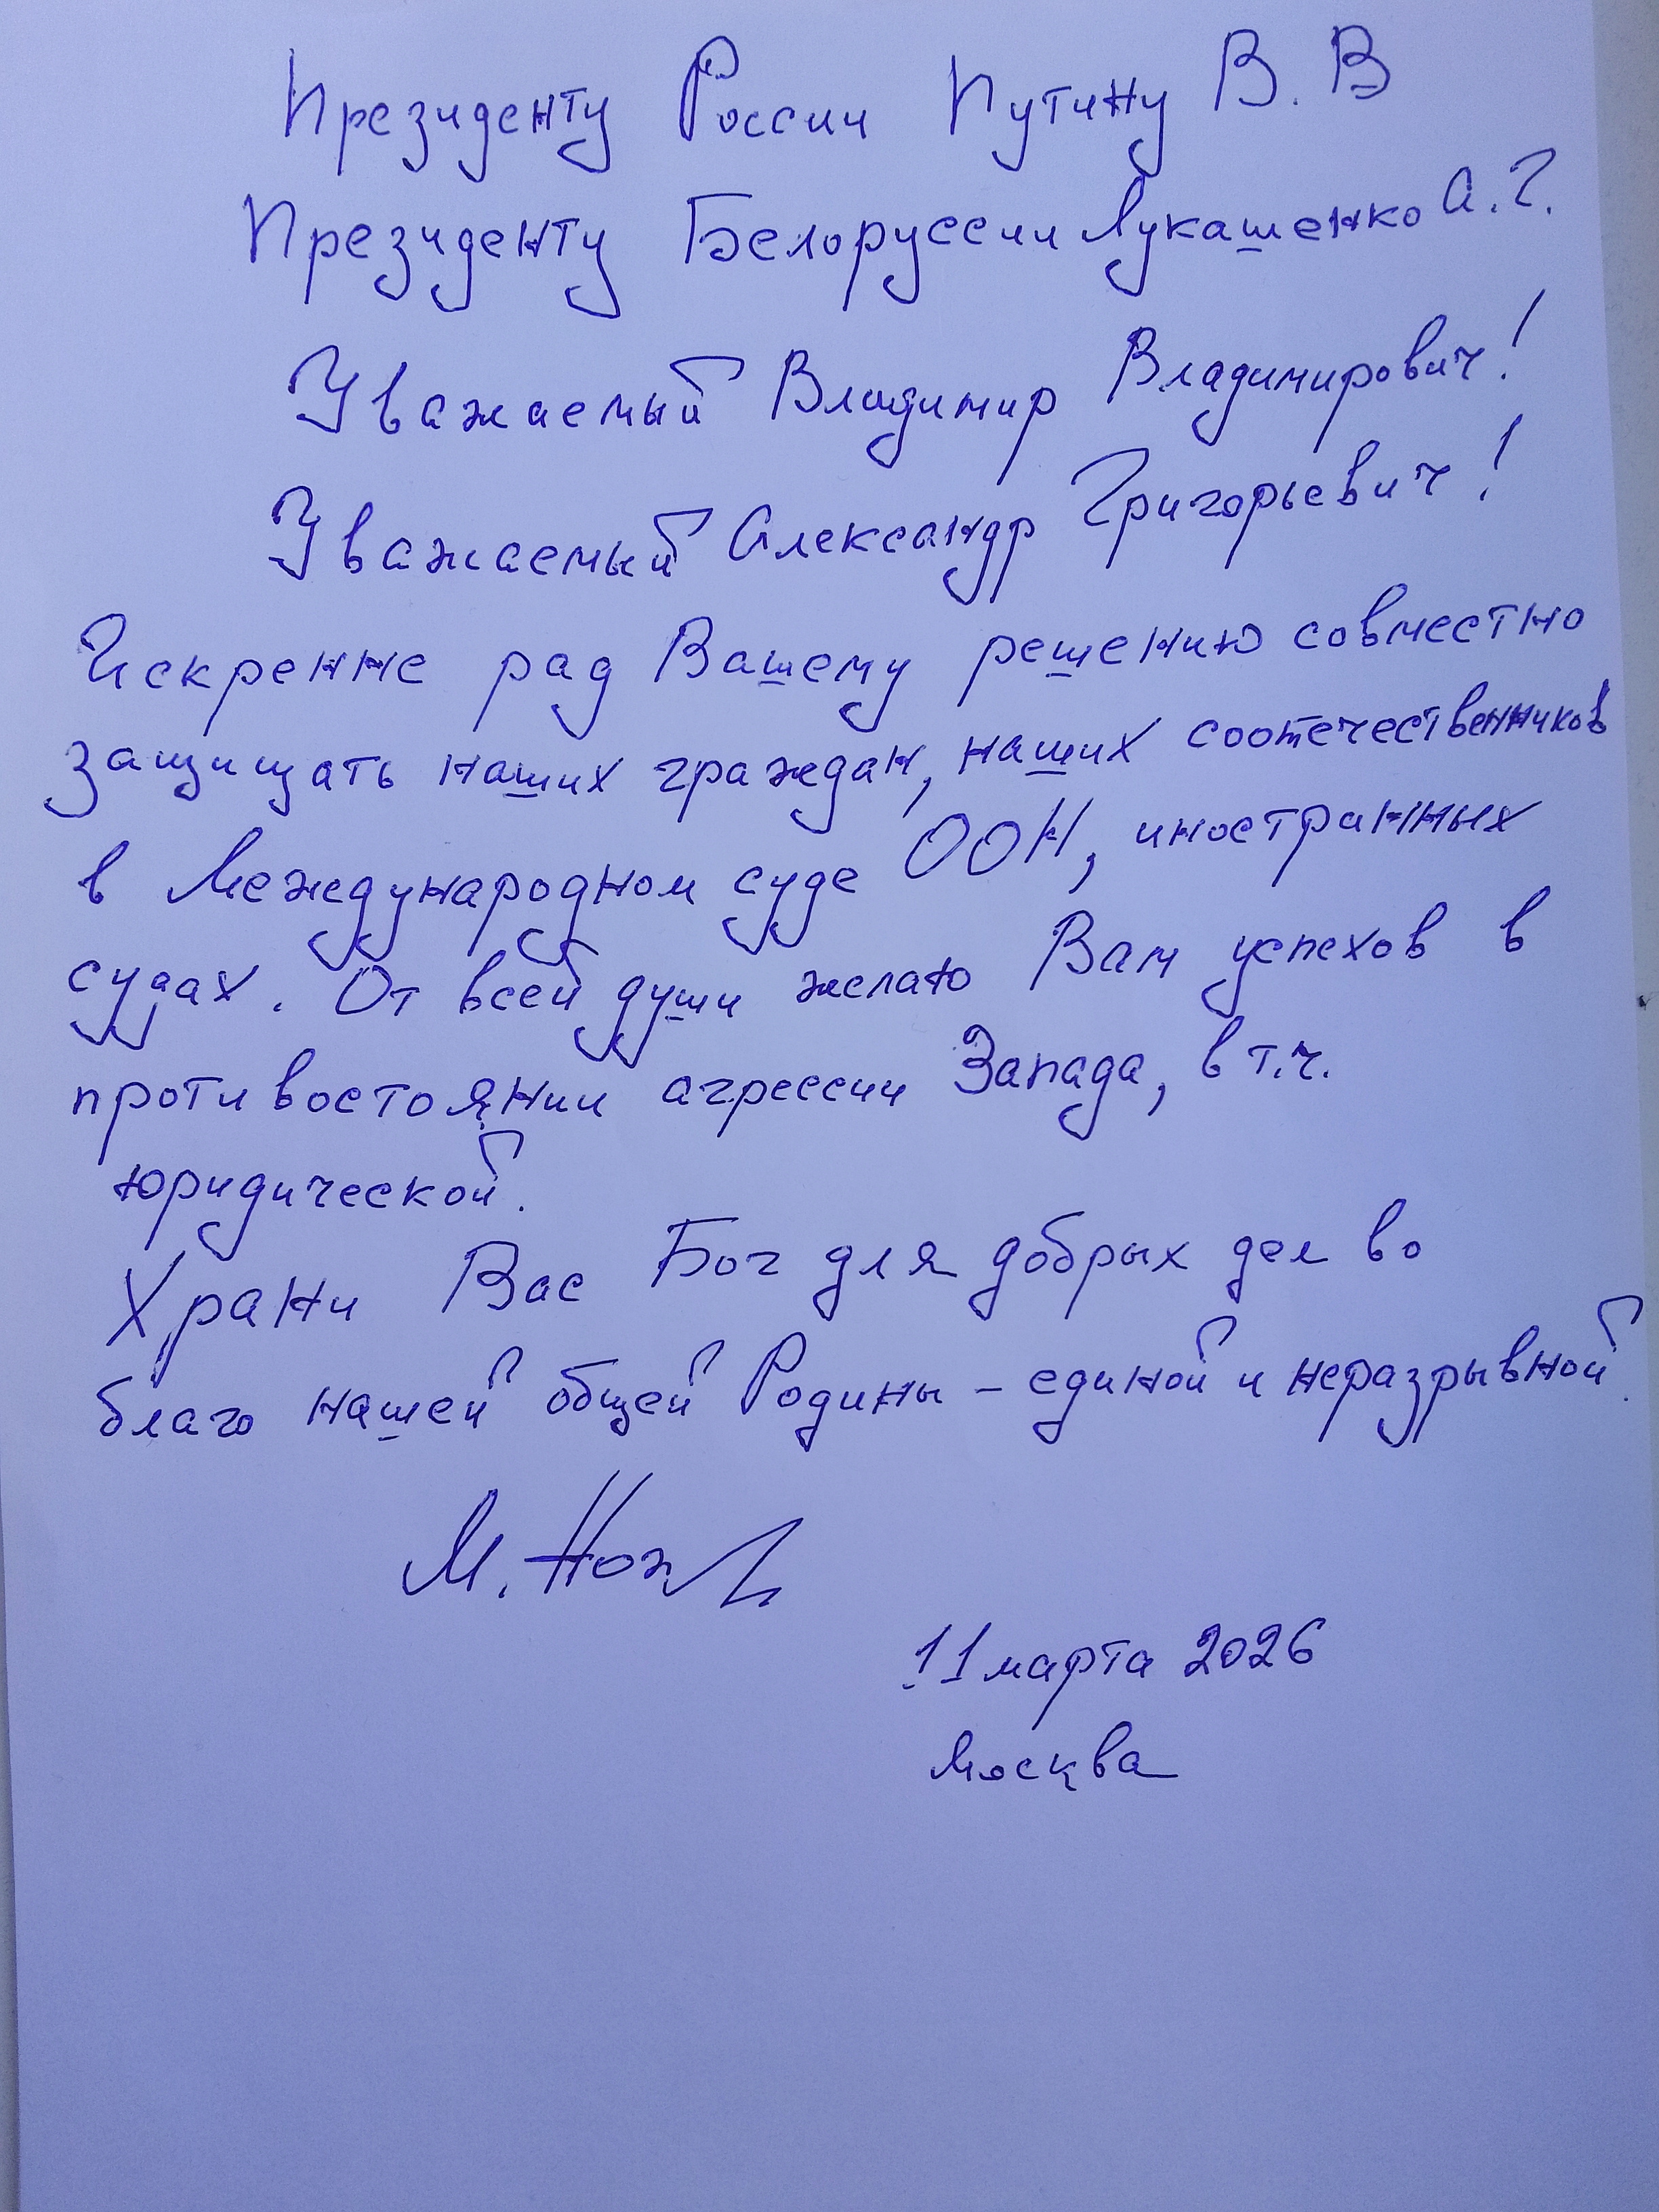 Президенту России Путину В. В
Президенту Белоруссии Лукашенко А.Г.
Уважаемый Владимир Владимирович!
Уважаемый Александр Григорьевич!
Искренне рад Вашему решению совместно
защищать наших граждан, наших соотечественников
в Международном суде ООН, иностранных
судах. От всей души желаю Вам успехов в
противостоянии агрессии Запада, в т.ч.
юридической.
Храни Вас Бог для добрых дел во
благо нашей общей Родины – единой и неразрывной.
М.
11 марта 2026
Москва